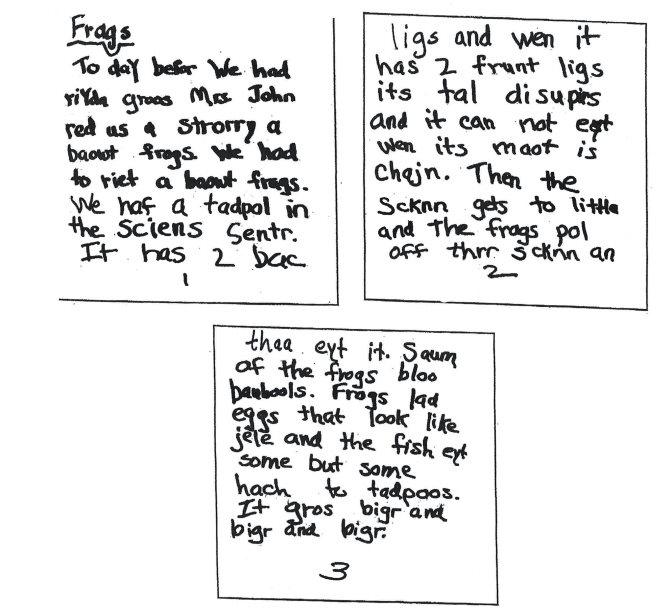 Frags
To day befor We had
riYda groos Mrs. John
red us a Strorry a
baowt frogs. We had
to riet a baowt frags.
We haf a tadpol in
the Sciens Sentr.
It has 2 bac
1
ligs and wen it
has 2 frunt ligs
its tal disupirs
and it can not eyt
wen its maot is
Chajn. Then the
Scknn gets to little
and the frags pol
off thrr scknn an
2
thaa eyt it. Saum
of the frogs bloo
baubools. Frogs lad
eggs that look like
jele and the fish eyt
some but some
hach to tadpoos.
It gros bigr and
bigr and bigr.
3